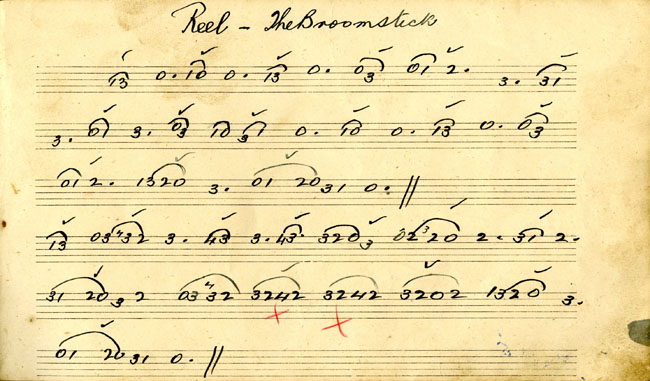 Reel - The Broomstick
13 0. 10 0. 13 0. 03 01 2. 3. 31
3. 01 3. 03 10 31 0. 10 0. 13 0. 03
01 2. 1320 3. 01 2031 0. //
13 03432 3. 43 3. 43. 3203 02320 2. 31 2.
31 2032 03432 3242 3242 3202 1320 3.
01 2031 0. //